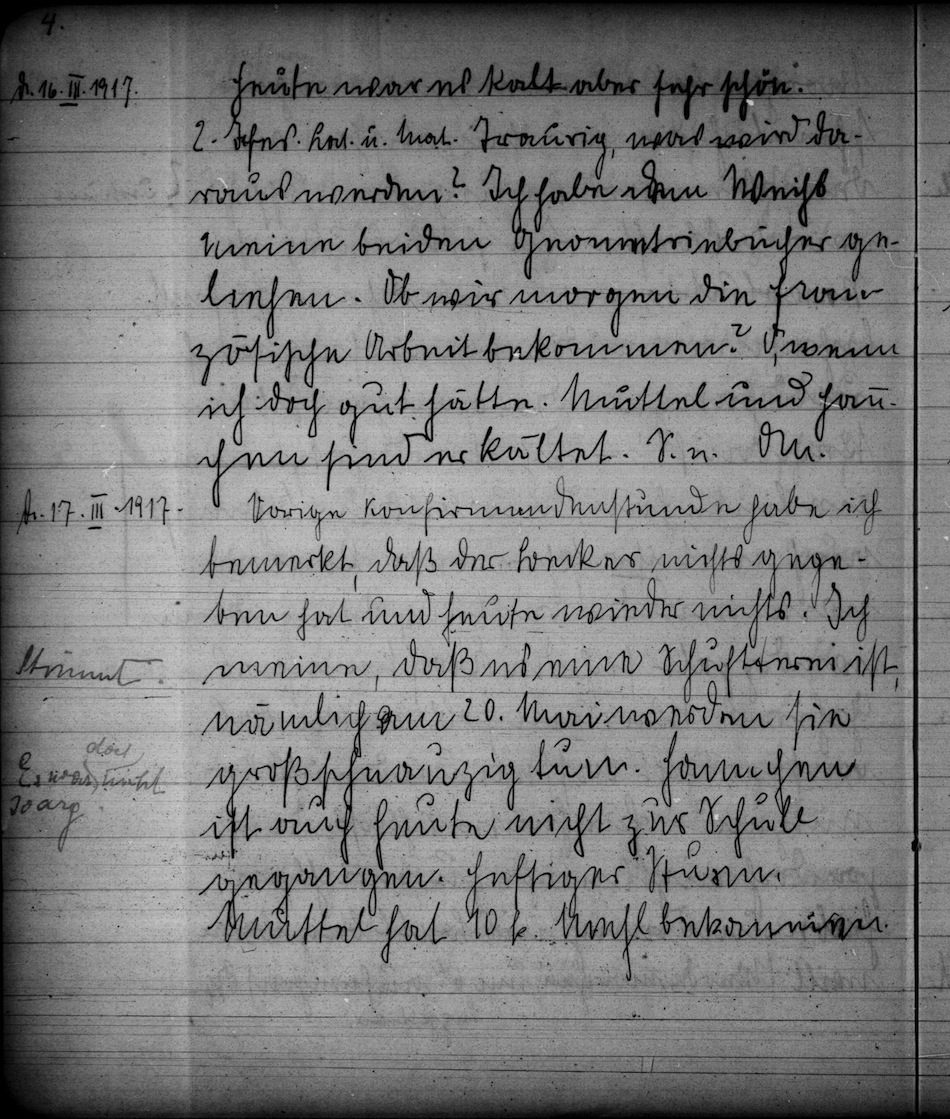 4.
d. 16. III. 1917. Heute war es kalt aber sehr schön.
2. Lat. u. Mat. Traurig, was wird da-
raus werden? Ich habe dem Weihs
meine beiden Geometriebücher ge-
liehen. Ob wir morgen die fran-
zösische Arbeit bekommen? O, wenn
ich doch gut hätte. Muttel und Han̄-
chen sind erkältet. S. n.
d. 17. III. 1917. Vorige Konfirmandenstunde habe ich
bemerkt, daß der Loecker nichts gege-
ben hat und heute wieder nichts. Ich
Stimmt. meine, daß es eine Schufterei ist,
nämlich am 20. Mai werden sie
doch
Es war nicht großschnauzig tun. Hannchen
so arg. ist auch heute nicht zur Schule
gegangen. Heftiger Sturm.
Muttel hat 10 k. Mehl bekommen.